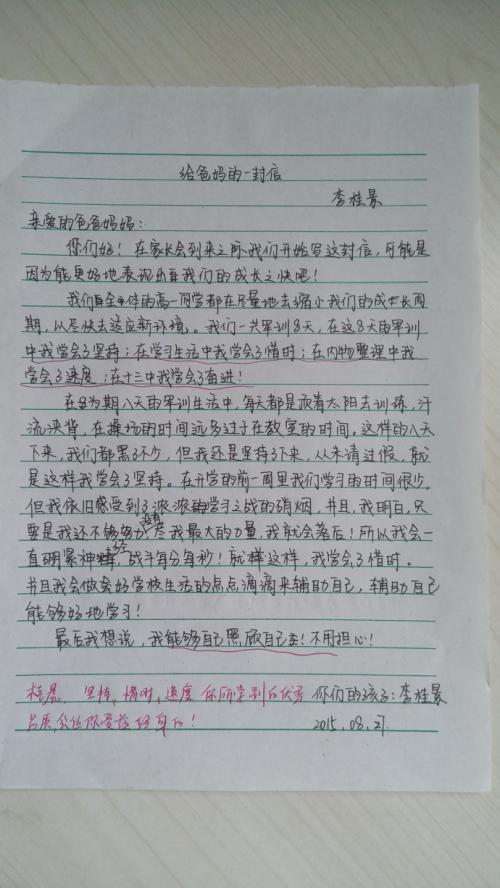 给爸妈的一封信
李桂景
亲爱的爸爸妈妈：
你们好！在家长会到来之际我们开始写这封信，可能是
因为能更好地表现出我们的成长之快吧！
我们全体的高一同学都在尽量地去缩小我们的成长周
期，从尽快去适应新环境。我们一共军训8天，在这8天的军训
中我学会了坚持；在学习生活中我学会了惜时；在内物整理中我
学会了速度；在十三中我学会了奋进！
在为期八天的军训生活中，每天都是顶着太阳去训练，汗
流浃背，在操场的时间远多过于在教室的时间。这样的八天
下来，我们都黑了不少，但我还是坚持了下来，从未请过假，就
是这样我学会了坚持。在开学的前一周里我们学习的时间很少，
但我依旧感受到了滚滚的学习之战的硝烟，并且，我明白，只
要是我还不够努力，尽我最大的力量，我就会落后！所以我会一
直绷紧神经，战斗每分每秒！就样这样，我学会了惜时。
并且我会做会好学校生活的点点滴滴来辅助自己，辅助自己
能够好地学习！
最后我想说，我能够自己照顾自己！不用担心！
桂景 坚持，惜时，速度 你所学到的优秀 你们的孩子：李桂景
品质，会让你受益终身的！ 2015.08.27.